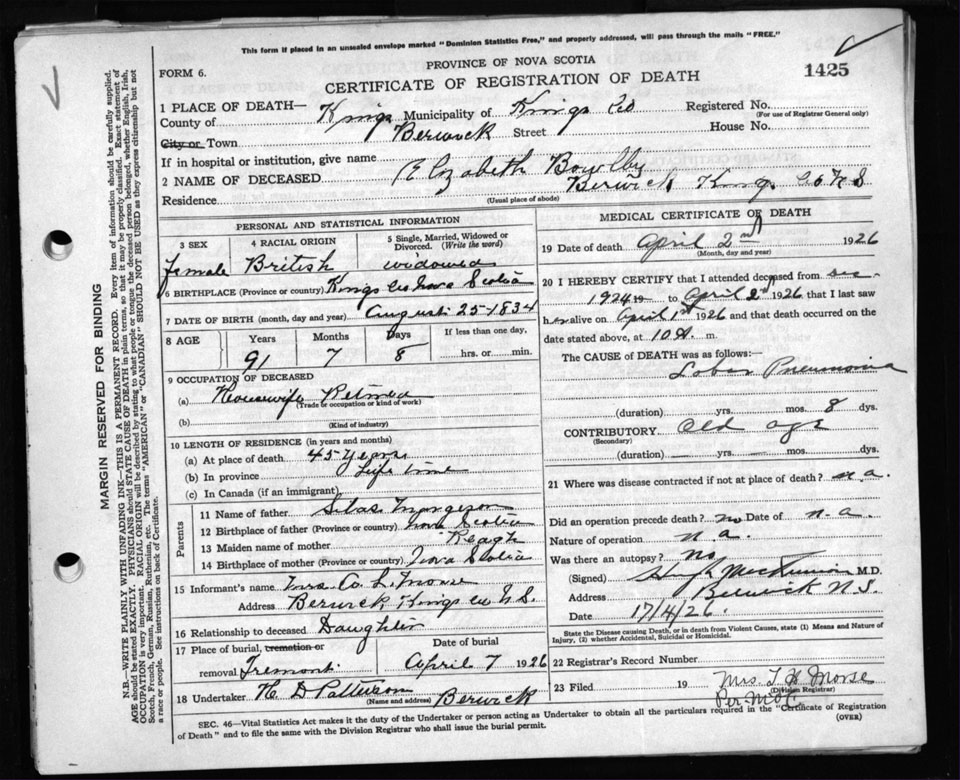 This form if placed in an unsealed envelope marked "Dominion Statistics Free," and properly addressed, will pass through the mails "FREE."
PROVINCE OF NOVA SCOTIA
FORM 6.
CERTIFICATE OF REGISTRATION OF DEATH
1425
1 PLACE OF DEATH—
County of Kings Municipality of Kings Co Registered No.
(For use of Registrar General only)
City or Town Berwick Street House No.
If in hospital or institution, give name
2 NAME OF DECEASED Elizabeth
Residence Berwick Kings Co N S
(Usual place of abode)
PERSONAL AND STATISTICAL INFORMATION
3 SEX 4 RACIAL ORIGIN 5 Single, Married, Widowed or Divorced. (Write the word)
female British widowed
6 BIRTHPLACE (Province or country) Kings Co Nova Scotia
7 DATE OF BIRTH (month, day and year) August 25-1834
8 AGE Years Months Days If less than one day,
91 7 8 hrs. or min.
9 OCCUPATION OF DECEASED
(a) Housewife Retired
(Trade or occupation or kind of work)
(b)
(Kind of industry)
10 LENGTH OF RESIDENCE (in years and months)
(a) At place of death 45 Years
(b) In province Life time
(c) In Canada (if an immigrant)
Parents
11 Name of father Silas Margeson
12 Birthplace of father (Province or country) Nova Scotia
13 Maiden name of mother Reagh
14 Birthplace of mother (Province or country) Nova Scotia
15 Informant's name Mrs
Address Berwick Kings Co N.S.
16 Relationship to deceased Daughter
17 Place of burial, cremation or Date of burial
removal Tremont April 7 1926
18 Undertaker H D Patterson Berwick
(Name and address)
MEDICAL CERTIFICATE OF DEATH
19 Date of death April 2nd 1926
(Month, day and year)
20 I HEREBY CERTIFY that I attended deceased from Dec
1924 19 to April 2nd 1926 that I last saw
her alive on April 1st 1926 and that death occurred on the
date stated above, at 10 a. m.
The CAUSE OF DEATH was as follows:
Lobar Pneumonia
(duration) yrs. mos. 8 dys.
CONTRIBUTORY Old age
(Secondary)
(duration) yrs. mos. dys.
21 Where was disease contracted if not at place of death? n.a.
Did an operation precede death? no Date of n.a.
Nature of operation n a
Was there an autopsy? No
(Signed) Hugh M.D.
Address Berwick N.S.
Date 17/4/26.
State the Disease causing Death, or in death from Violent Causes, state (1) Means and Nature of Injury, (2) whether Accidental, Suicidal or Homicidal.
22 Registrar's Record Number
23 Filed 19 Mrs. Morse
(Division Registrar)
SEC. 46—Vital Statistics Act makes it the duty of the Undertaker or person acting as Undertaker to obtain all the particulars required in the "Certificate of Registration
of Death" and to file the same with the Division Registrar who shall issue the burial permit.
(OVER)
MARGIN RESERVED FOR BINDING
N.B.—WRITE PLAINLY WITH UNFADING INK—THIS IS A PERMANENT RECORD. Every item of information should be carefully supplied.
AGE should be stated EXACTLY. PHYSICIANS should STATE CAUSE OF DEATH in plain terms, so that it may be properly classified. Exact statement of
OCCUPATION is very important. RACIAL ORIGIN will be described by stating to what people or tongue the deceased person belonged, whether English, Irish,
Scotch, French, German, Russian, Ruthenian, etc. The terms "AMERICAN" or "CANADIAN" SHOULD NOT BE USED as they express citizenship but not
a race or people. See instructions on back of Certificate.